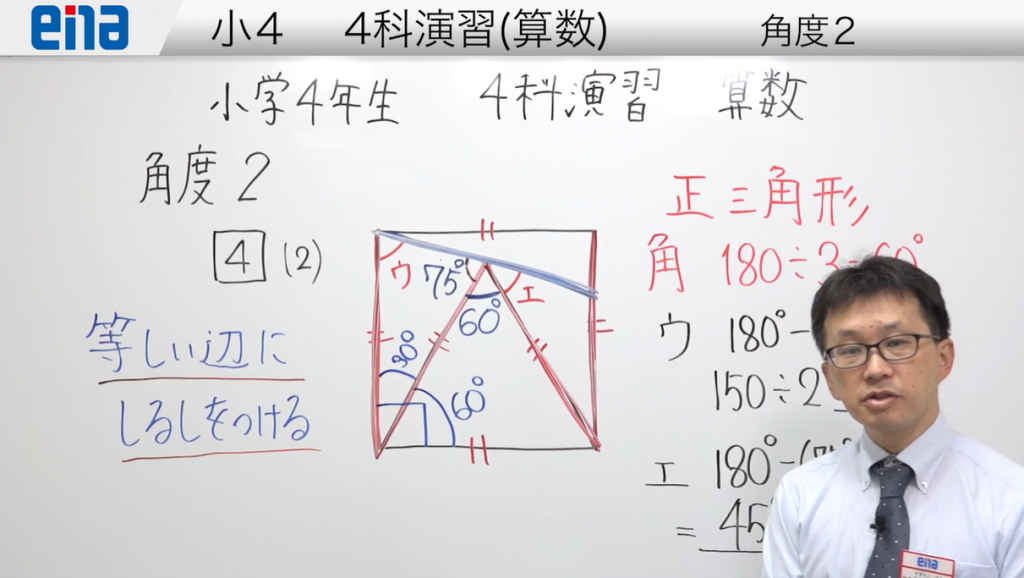 ena
小4 4科演習(算数) 角度2
小学4年生 4科演習 算数
角度2
4 (2)
等しい辺に
しるしをつける
ウ 75° エ
60°
30°
60°
正三角形
角 180÷3=60°
ウ 180°-
150÷2
エ 180°-(75°
= 45°
ena